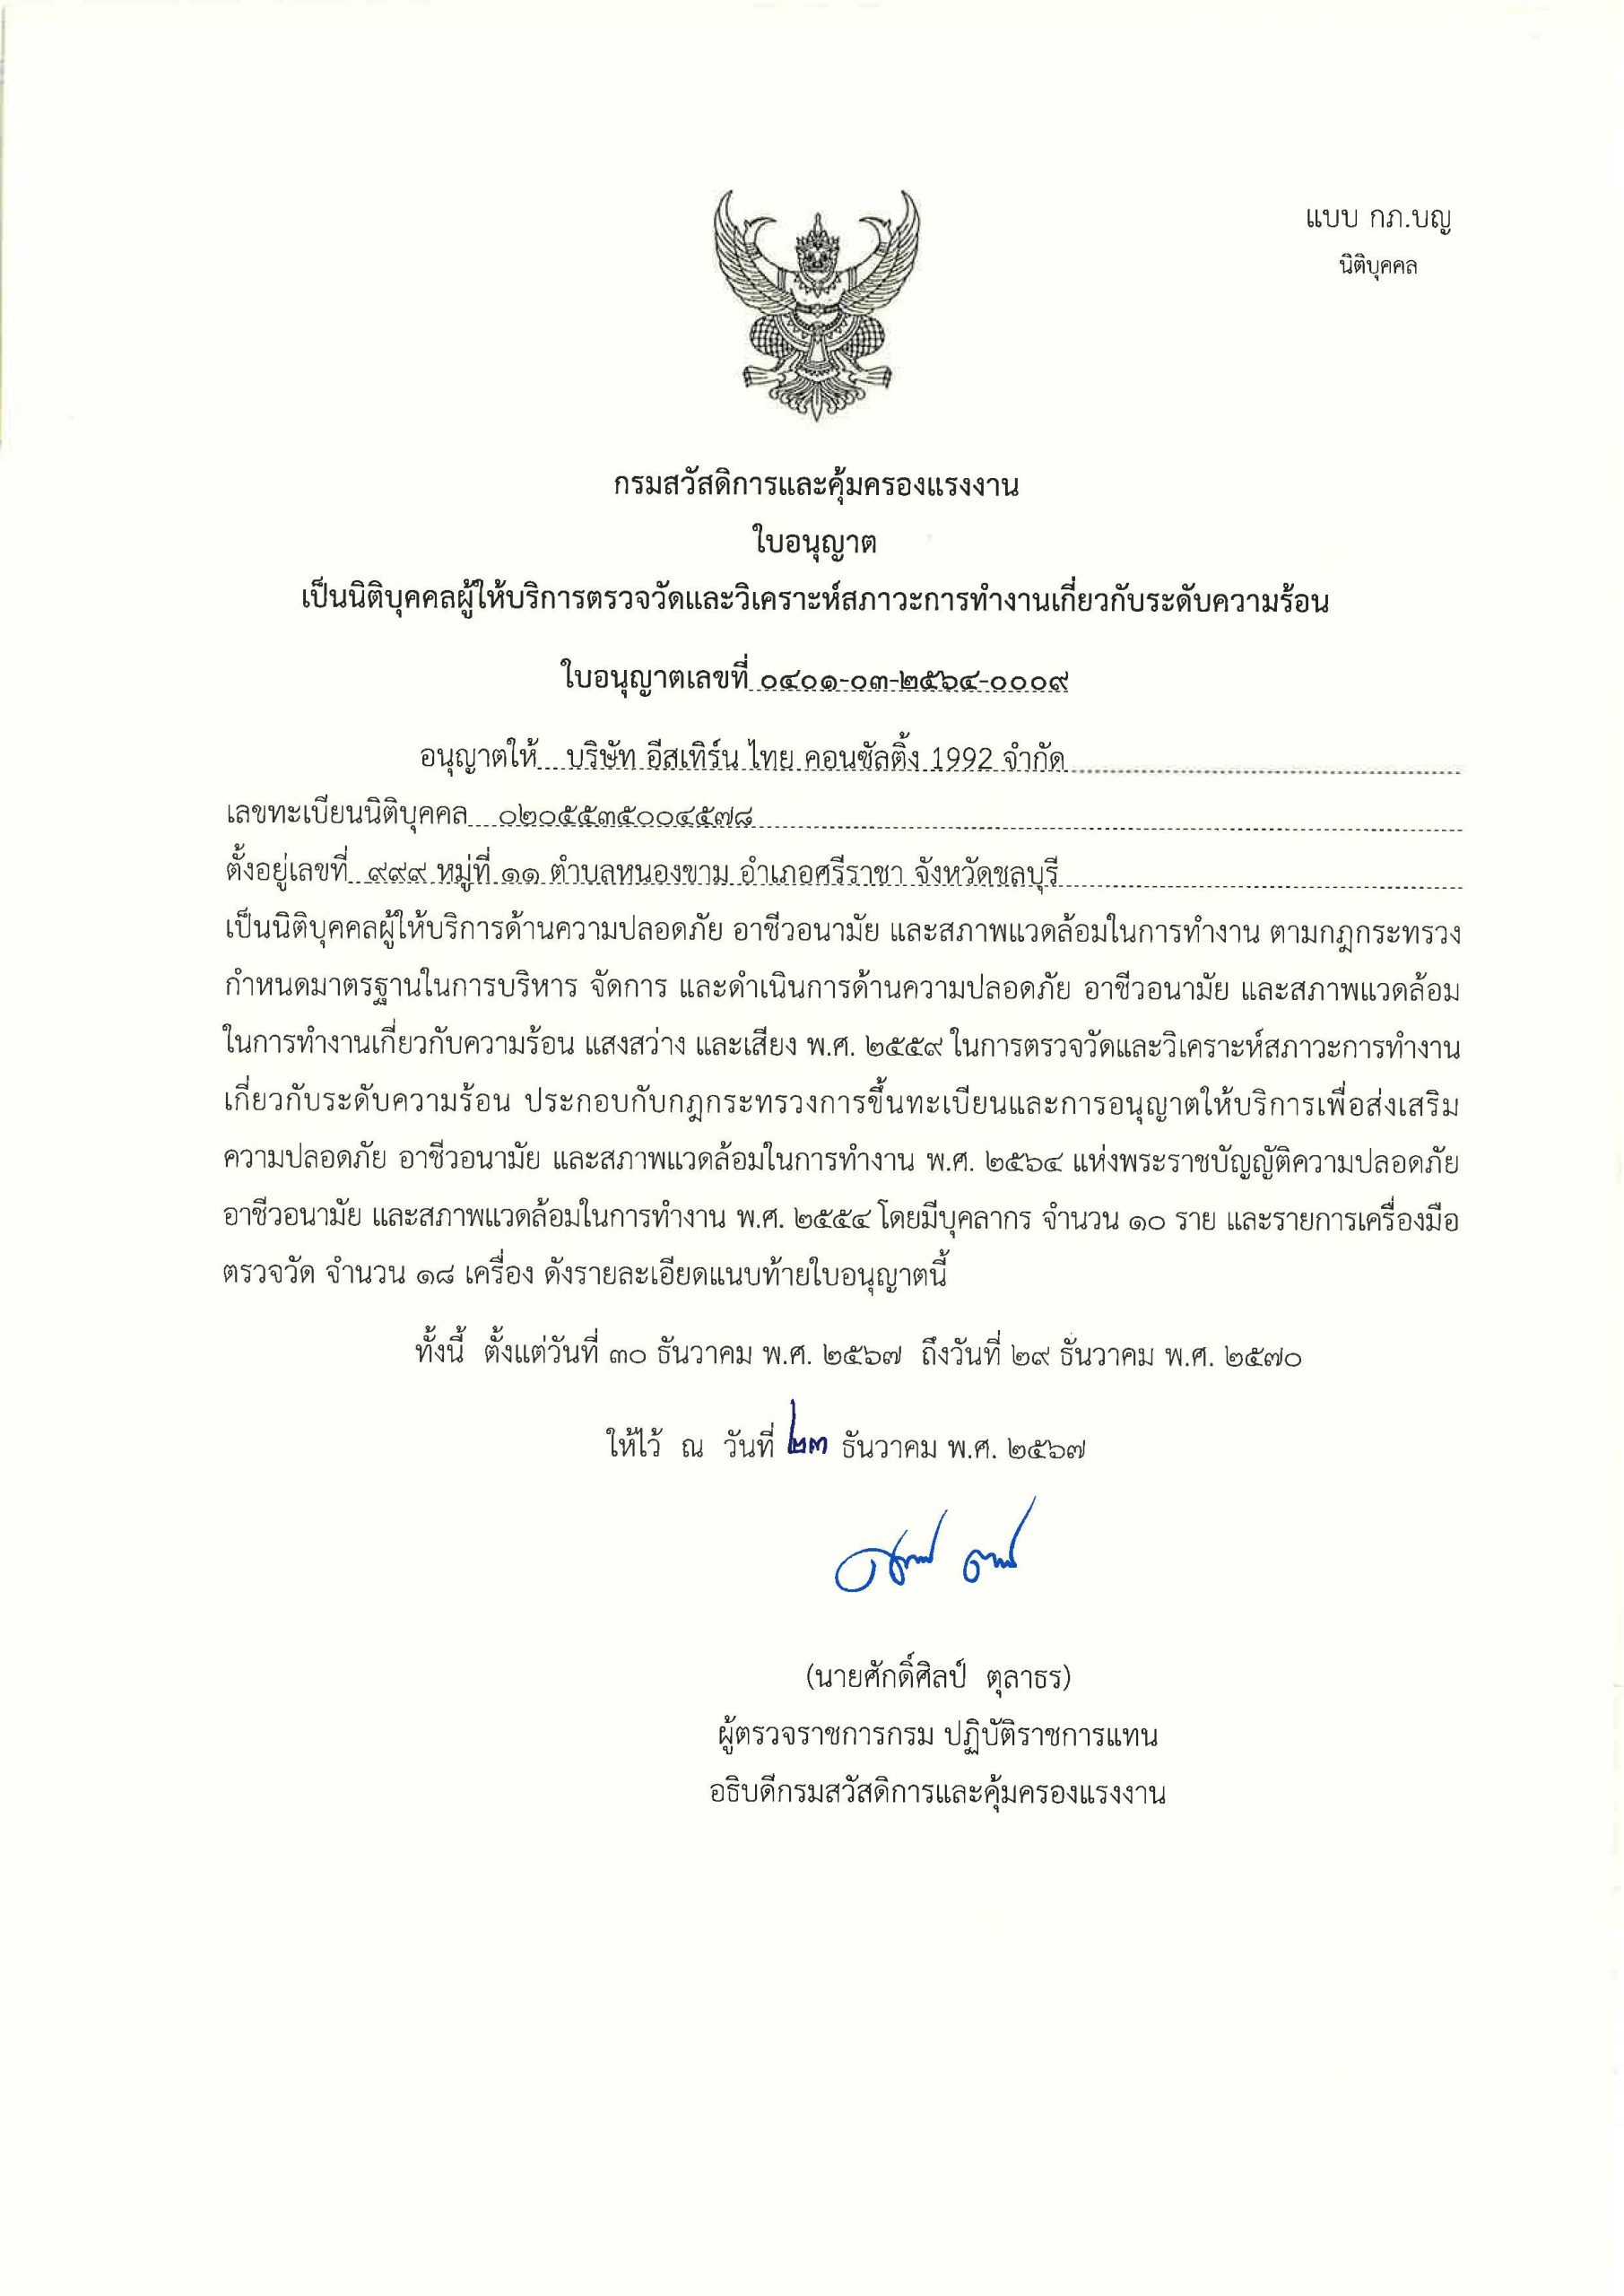 แบบ กภ.บญ
นิติบุคคล
กรมสวัสดิการและคุ้มครองแรงงาน
ใบอนุญาต
เป็นนิติบุคคลผู้ให้บริการตรวจวัดและวิเคราะห์สภาวะการทำงานเกี่ยวกับระดับความร้อน
ใบอนุญาตเลขที่ ๐๔๐๑-๐๓-๒๕๖๔-๐๐๐๙
อนุญาตให้ บริษัท อีสเทิร์น ไทย คอนซัลติ้ง 1992 จำกัด
เลขทะเบียนนิติบุคคล ๐๒๐๕๕๓๕๐๐๔๕๗๘
ตั้งอยู่เลขที่ ๙๙๙ หมู่ที่ ๑๑ ตำบลหนองขาม อำเภอศรีราชา จังหวัดชลบุรี
เป็นนิติบุคคลผู้ให้บริการด้านความปลอดภัย อาชีวอนามัย และสภาพแวดล้อมในการทำงาน ตามกฎกระทรวง
กำหนดมาตรฐานในการบริหาร จัดการ และดำเนินการด้านความปลอดภัย อาชีวอนามัย และสภาพแวดล้อม
ในการทำงานเกี่ยวกับความร้อน แสงสว่าง และเสียง พ.ศ. ๒๕๕๙ ในการตรวจวัดและวิเคราะห์สภาวะการทำงาน
เกี่ยวกับระดับความร้อน ประกอบกับกฎกระทรวงการขึ้นทะเบียนและการอนุญาตให้บริการเพื่อส่งเสริม
ความปลอดภัย อาชีวอนามัย และสภาพแวดล้อมในการทำงาน พ.ศ. ๒๕๖๔ แห่งพระราชบัญญัติความปลอดภัย
อาชีวอนามัย และสภาพแวดล้อมในการทำงาน พ.ศ. ๒๕๕๔ โดยมีบุคลากร จำนวน ๑๐ ราย และรายการเครื่องมือ
ตรวจวัด จำนวน ๑๘ เครื่อง ดังรายละเอียดแนบท้ายใบอนุญาตนี้
ทั้งนี้ ตั้งแต่วันที่ ๓๐ ธันวาคม พ.ศ. ๒๕๖๗ ถึงวันที่ ๒๙ ธันวาคม พ.ศ. ๒๕๗๐
ให้ไว้ ณ วันที่ ๒๓ ธันวาคม พ.ศ. ๒๕๖๗
(นายศักดิ์ศิลป์ ตุลาธร)
ผู้ตรวจราชการกรม ปฏิบัติราชการแทน
อธิบดีกรมสวัสดิการและคุ้มครองแรงงาน